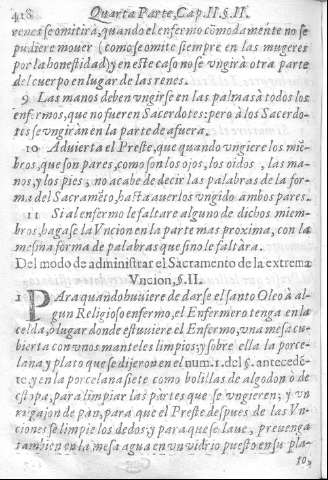 418 Quarta Parte, Cap. II. §. II.
renes se omitirà, quando el enfermo cõmodamente no se
pudiere mouer (como se omite siempre en las mugeres
por la honestidad) y en este caso no se vngirà otra parte
del cuerpo en lugar de las renes.
9 Las manos deben vngirse en las palmas à todos los
enfermos, que no fueren Sacerdotes: pero à los Sacerdo-
tes se vngiràn en la parte de afuera.
10 Aduierta el Preste, que quando vngiere los miẽ-
bros, que son pares, como son los ojos, los oidos, las ma-
nos, y los pies, no acabe de decir las palabras de la for-
ma del Sacramẽto, hasta auerlos vngido ambos pares.
11 Si al enfermo le faltare alguno de dichos miem-
bros, hagase la Vncion en la parte mas proxima, con la
mesma forma de palabras que si no le faltàra.
Del modo de administrar el Sacramento de la extrema
Vncion, §. II.
1 PAra quando huuiere de darse el santo Oleo à al-
gun Religioso enfermo, el Enfermero tenga en la
celda, ò lugar donde estuuiere el Enfermo, vna mesa cu-
bierta con vnos manteles limpios: y sobre ella la porce-
lana y plato que se dijeron en el num. 1. del §. antecedẽ-
te, y en la porcelana siete como bolillas de algodon ò de
estopa, para limpiar las pàrtes que se vngieren; y vn
migajon de pan, para que el Preste despues de las Vn-
ciones se limpie los dedos; y para que se laue, preuenga
tambien en la mesa agua en vn vidrio puesto en su pla-
to,